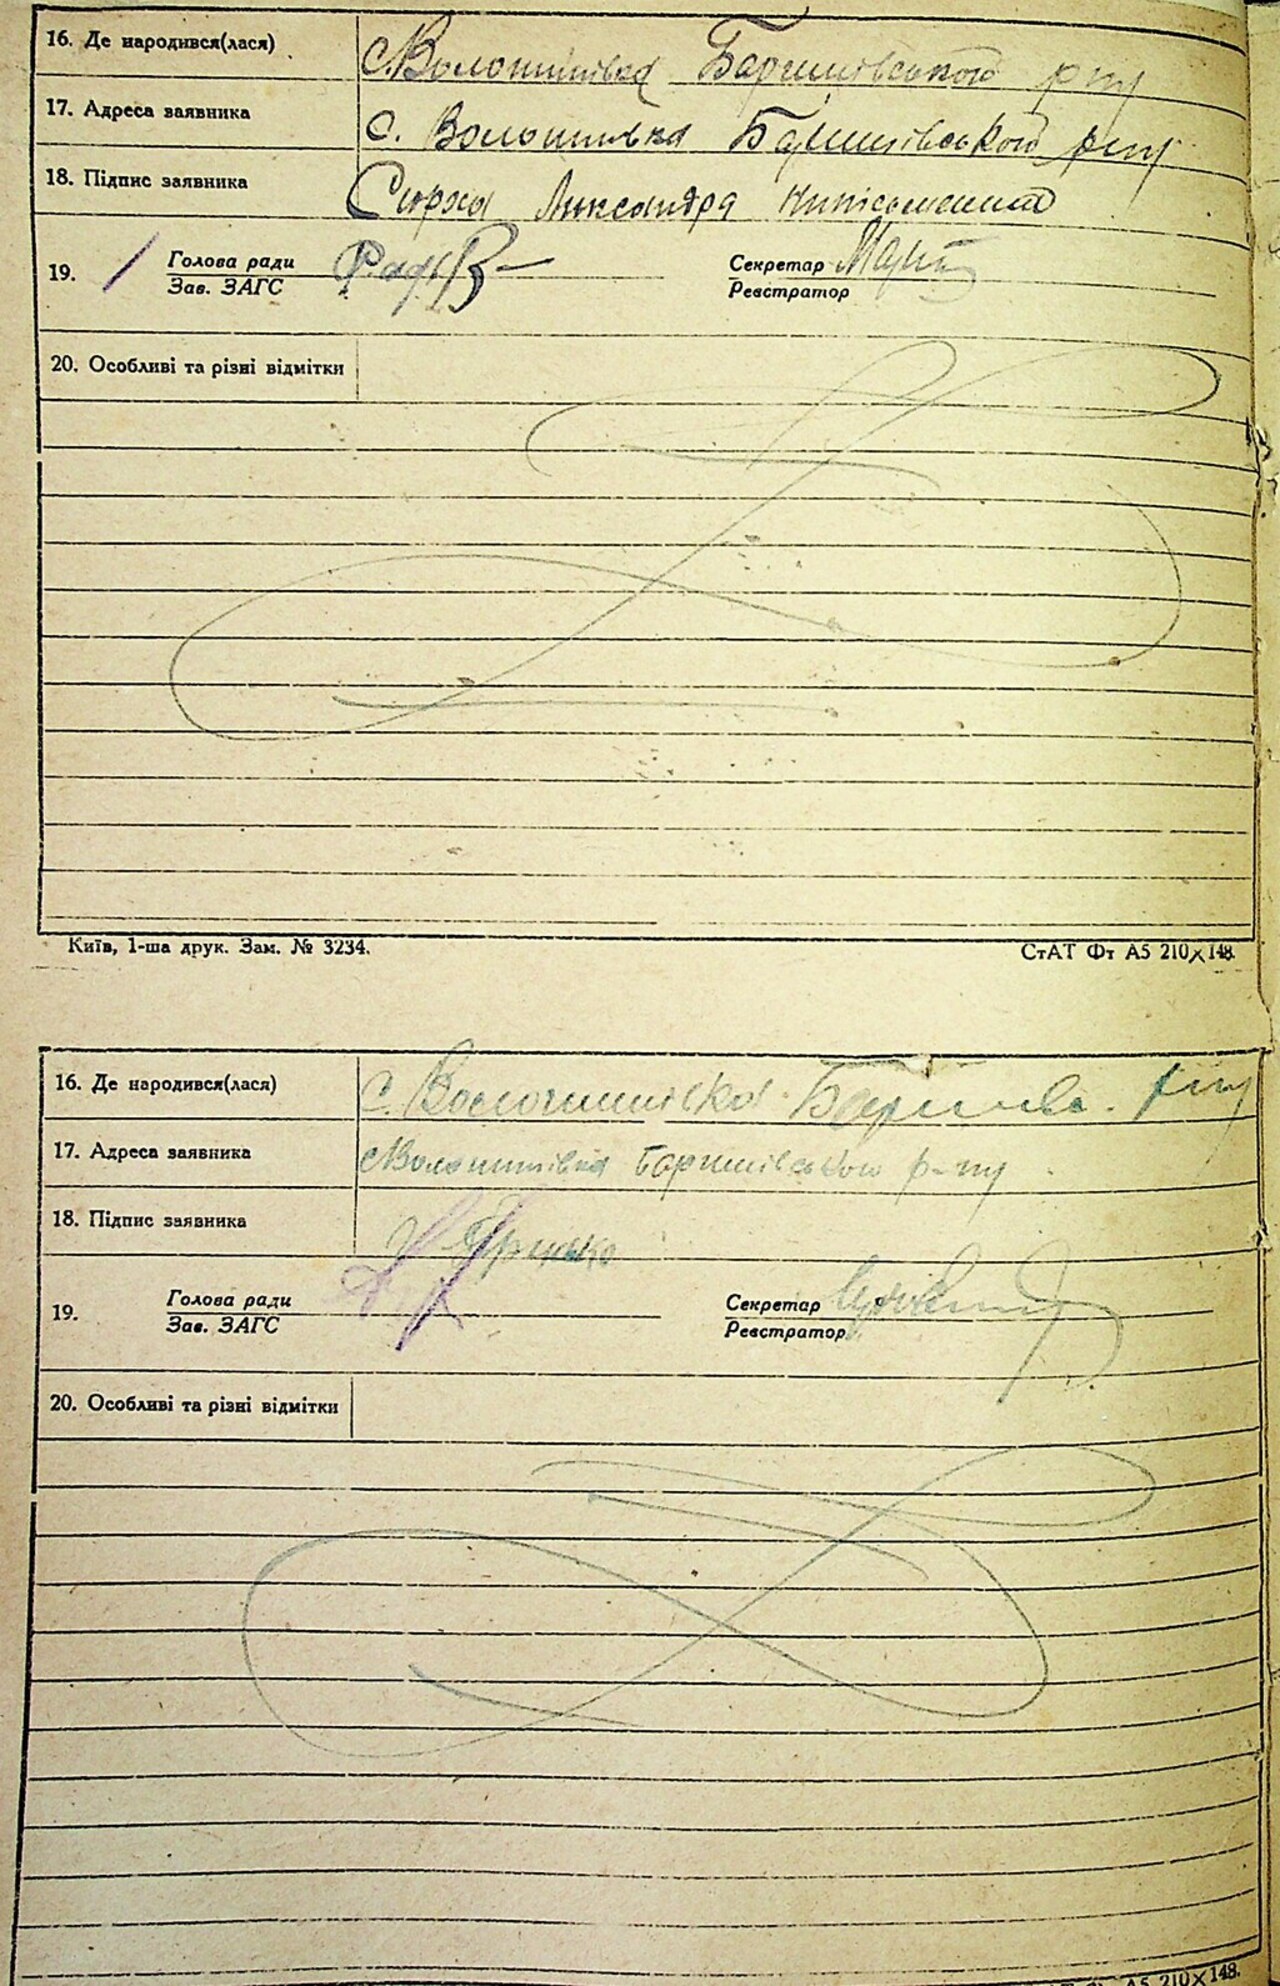 16. Де народився(лася) с. Волошинівка Баришівського р-ну
17. Адреса заявника с. Волошинівка Баришівського р-ну
18. Підпис заявника Сирха Лиександра
19. Голова ради Секретар
Зав. ЗАГС Реєстратор
20. Особливі та різні відмітки
Київ, 1-ша друк. Зам. № 3234. СтАТ Фт А5 210×148.
16. Де народився(лася) с. Волошинівка р-ну
17. Адреса заявника с. Волошинівка Баришівського р-ну
18. Підпис заявника Гринько
19. Голова ради Секретар
Зав. ЗАГС Реєстратор
20. Особливі та різні відмітки
А5 210×148.